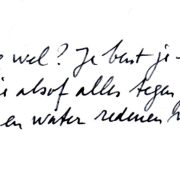 wel? Je bent je-
alsof alles tegen
en water redenen